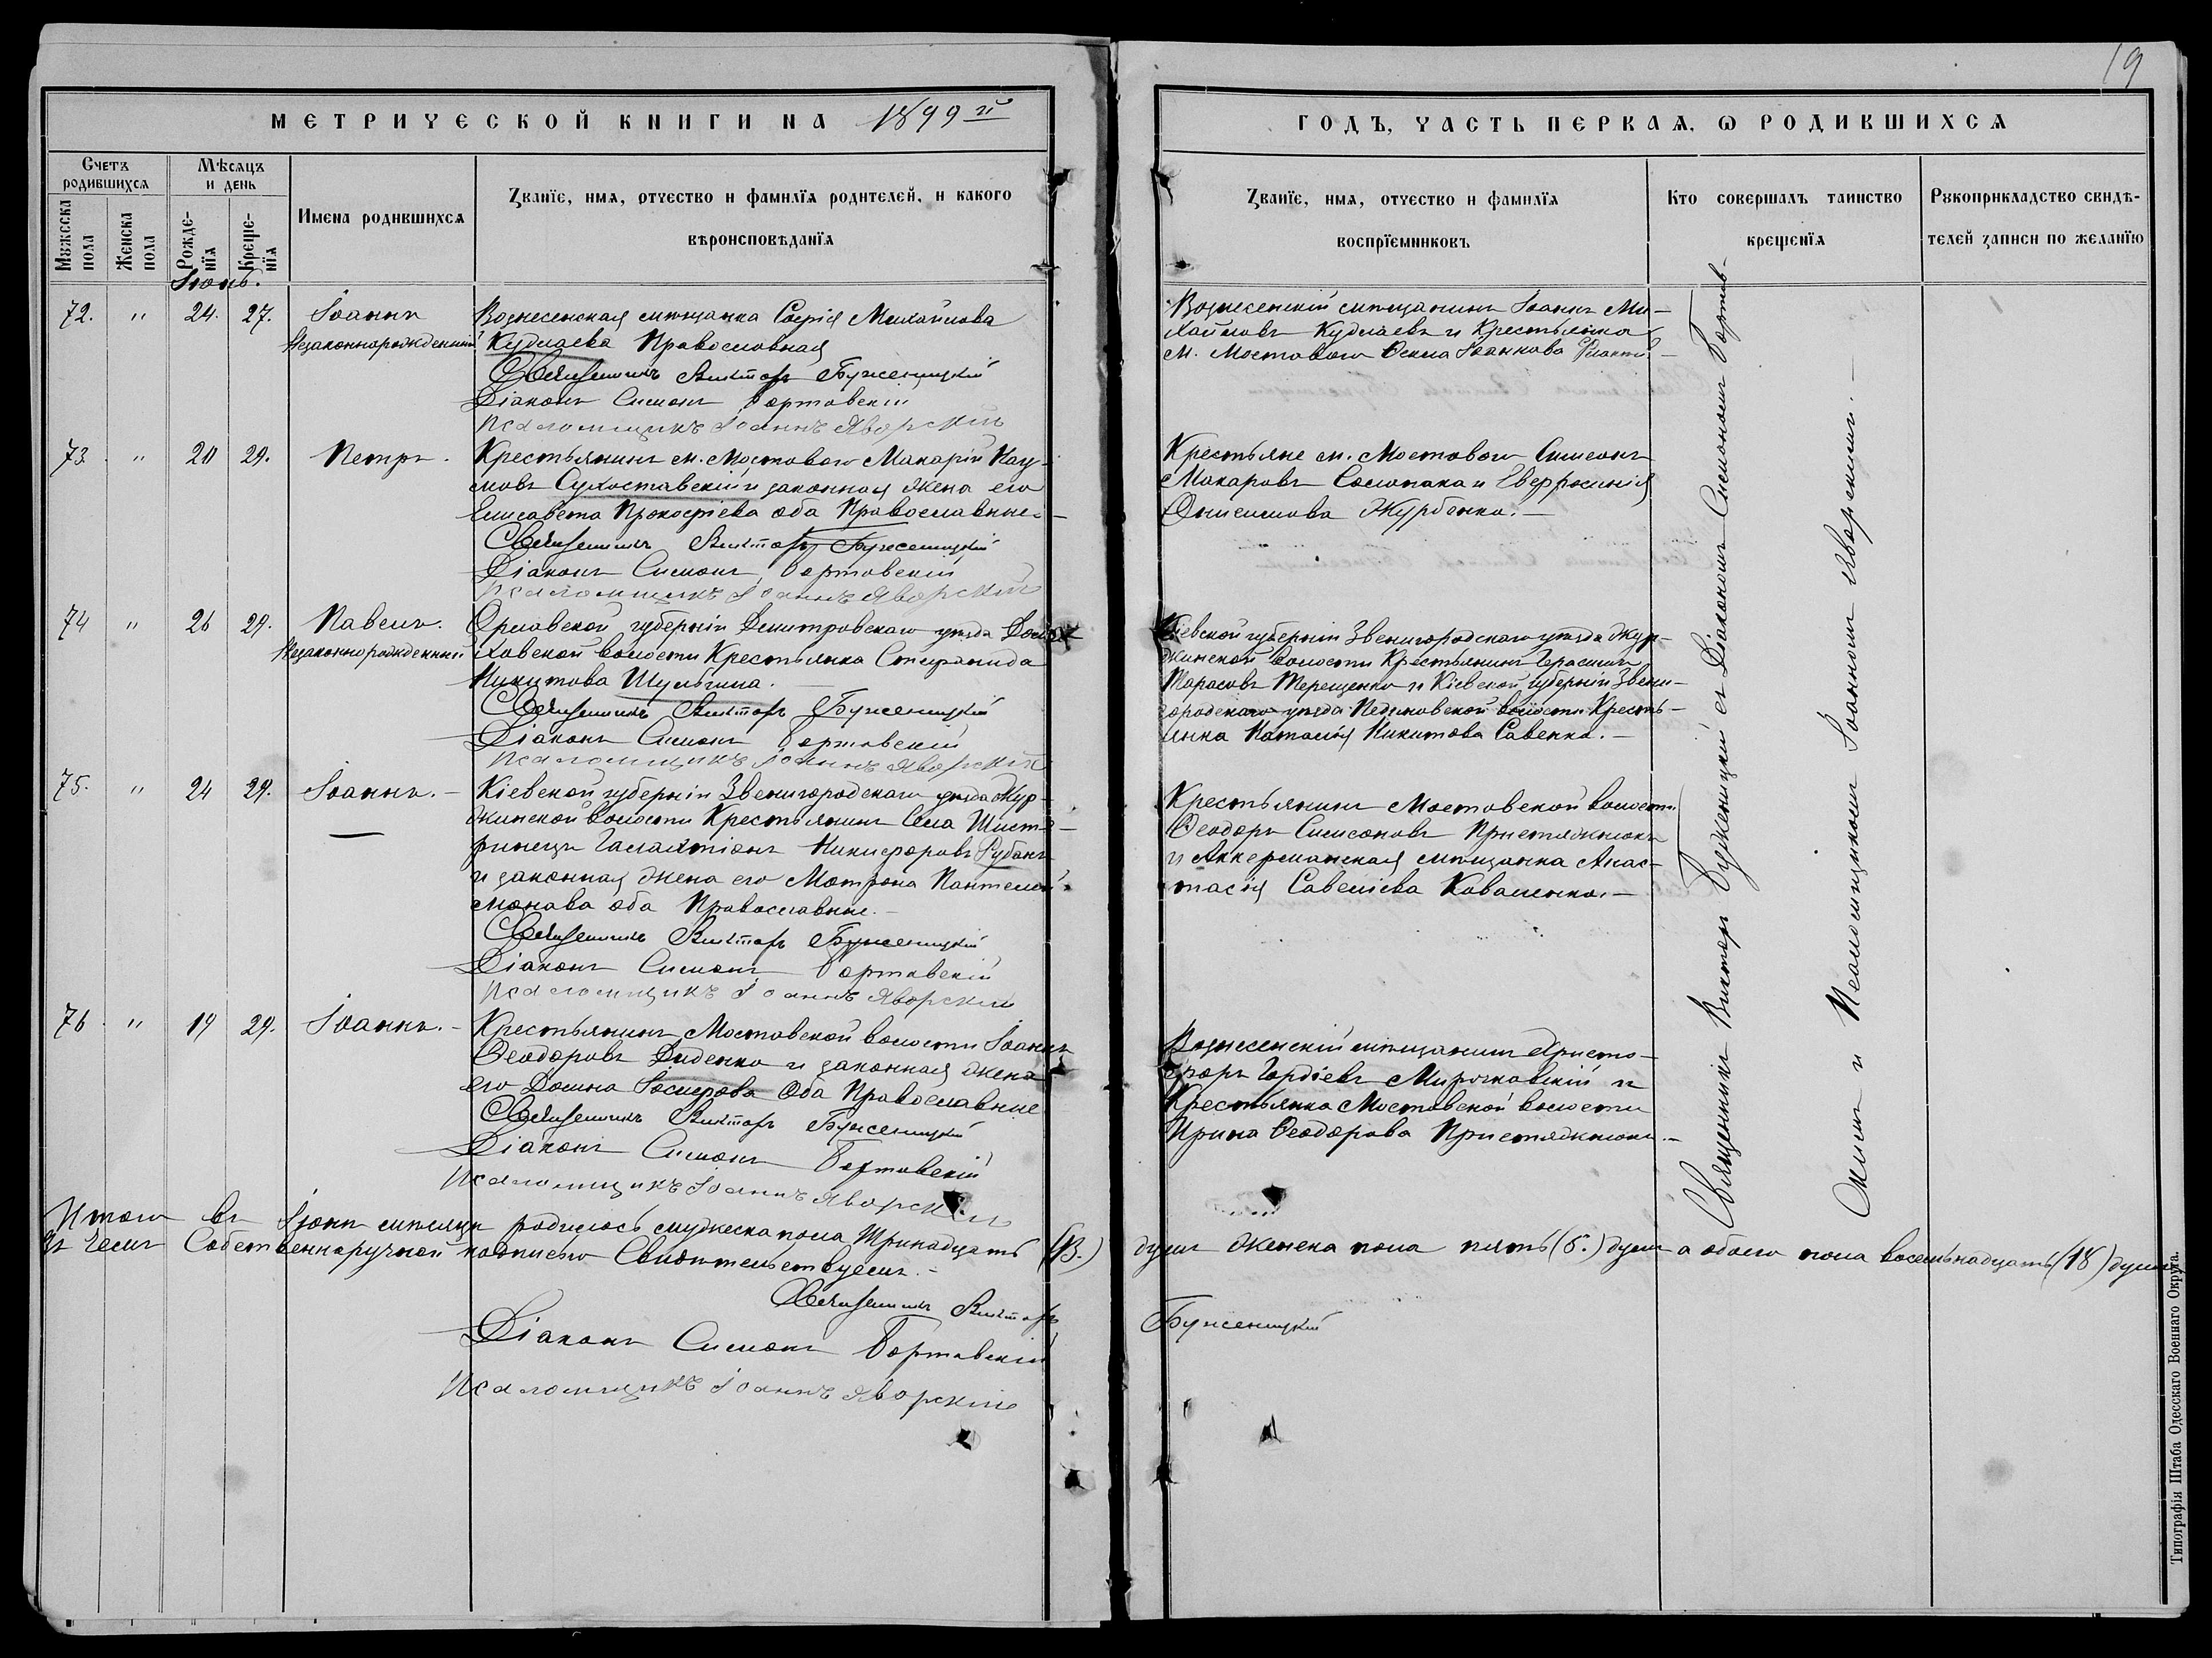 19
МЕТРИЧЕСКОЙ КНИГИ НА 1899й
ГОДЪ, ЧАСТЬ ПЕРВАЯ, Ѡ РОДИВШИХСЯ
Счетъ родившихся
Мѣсяцъ и день
Мужеска пола
Женска пола
Рожденія
Крещенія
Имена родившихся
Званіе, имя, отчество и фамилія родителей, и какого
вѣроисповѣданія
Званіе, имя, отчество и фамилія
воспріемниковъ
Кто совершалъ таинство
крещенія
Рукоприкладство свидѣ-
телей записи по желанію
Іюнь.
72. " 24. 27. Іоаннъ
Незаконнорожденный
Вознесенская мѣщанка Софія Михайлова
Кудлаева Православная
Священникъ Викторъ Буженицкій
Діаконъ Симонъ Бортовскій
Псаломщикъ Іоаннъ Яворскій
Вознесенскій мѣщанинъ Іоаннъ Ми-
хайловъ Кудлаевъ и Крестьянка
м. Мостового Іоаннова
73. " 20 29. Петръ.
Крестьянинъ м. Мостового Макарій Нау-
мовъ Сухоставскій и законная жена его
Елисавета Прокофіева оба Православные.
Священникъ Викторъ Буженицкій
Діаконъ Симонъ Бортовскій
Псаломщикъ Іоаннъ Яворскій
Крестьяне м. Мостового Симеонъ
Макаровъ Соломаха и Евфросинія
Онисимова Журбенко.—
74 " 26 29. Павелъ.
Незаконнорожденный
Орловской губерніи Дмитровскаго уѣзда
ховской волости Крестьянка Стефанида
Никитова Шульгина.
Священникъ Викторъ Буженицкій
Діаконъ Симонъ Бортовскій
Псаломщикъ Іоаннъ Яворскій
Кіевской губерніи Звенигородскаго уѣзда Жур-
жинской волости Крестьянинъ Герасимъ
Тарасовъ Терещенко и Кіевской губерніи Звени-
городскаго уѣзда Пединовской волости Кресть-
янка Наталія Никитова Савенко.—
75. " 24 29. Іоаннъ.—
Кіевской губерніи Звенигородскаго уѣзда Жур-
жинской волости Крестьянинъ села
Галактіонъ Никифоровъ Рубанъ
и законная жена его Матрона Пантелей-
монова оба Православные.—
Священникъ Викторъ Буженицкій
Діаконъ Симонъ Бортовскій
Псаломщикъ Іоаннъ Яворскій
Крестьянинъ Мостовской волости
Ѳеодоръ Симеоновъ Пристяжнюкъ
и Аккерманская мѣщанка Анас-
тасія Савеліева Коваленко.—
76. " 19 29. Іоаннъ.—
Крестьянинъ Мостовской волости Іоаннъ
Ѳеодоровъ Диденко и законная жена
его Домна Іосифова Оба Православные
Священникъ Викторъ Буженицкій
Діаконъ Симонъ Бортовскій
Псаломщикъ Іоаннъ Яворскій
Вознесенскій мѣщанинъ Христо-
форъ Гордіевъ Мирочковскій и
Крестьянка Мостовской волости
Ирина Ѳеодорова Пристяжнюкъ.—
Священникъ Викторъ Буженицкій съ Діакономъ Симономъ Бортов-
скимъ и Псаломщикомъ Іоанномъ Яворскимъ.—
Итого въ Іюнѣ мѣсяцѣ родилось мужеска пола Тринадцать (13.) душъ женска пола пять (5.) душъ а обоего пола восемьнадцать (18) душъ
въ чемъ Собственноручной подписью Свидѣтельствуемъ.—
Священникъ Викторъ Буженицкій
Діаконъ Симонъ Бортовскій
Псаломщикъ Іоаннъ Яворскій
Типографія Штаба Одесскаго Военнаго Округа.